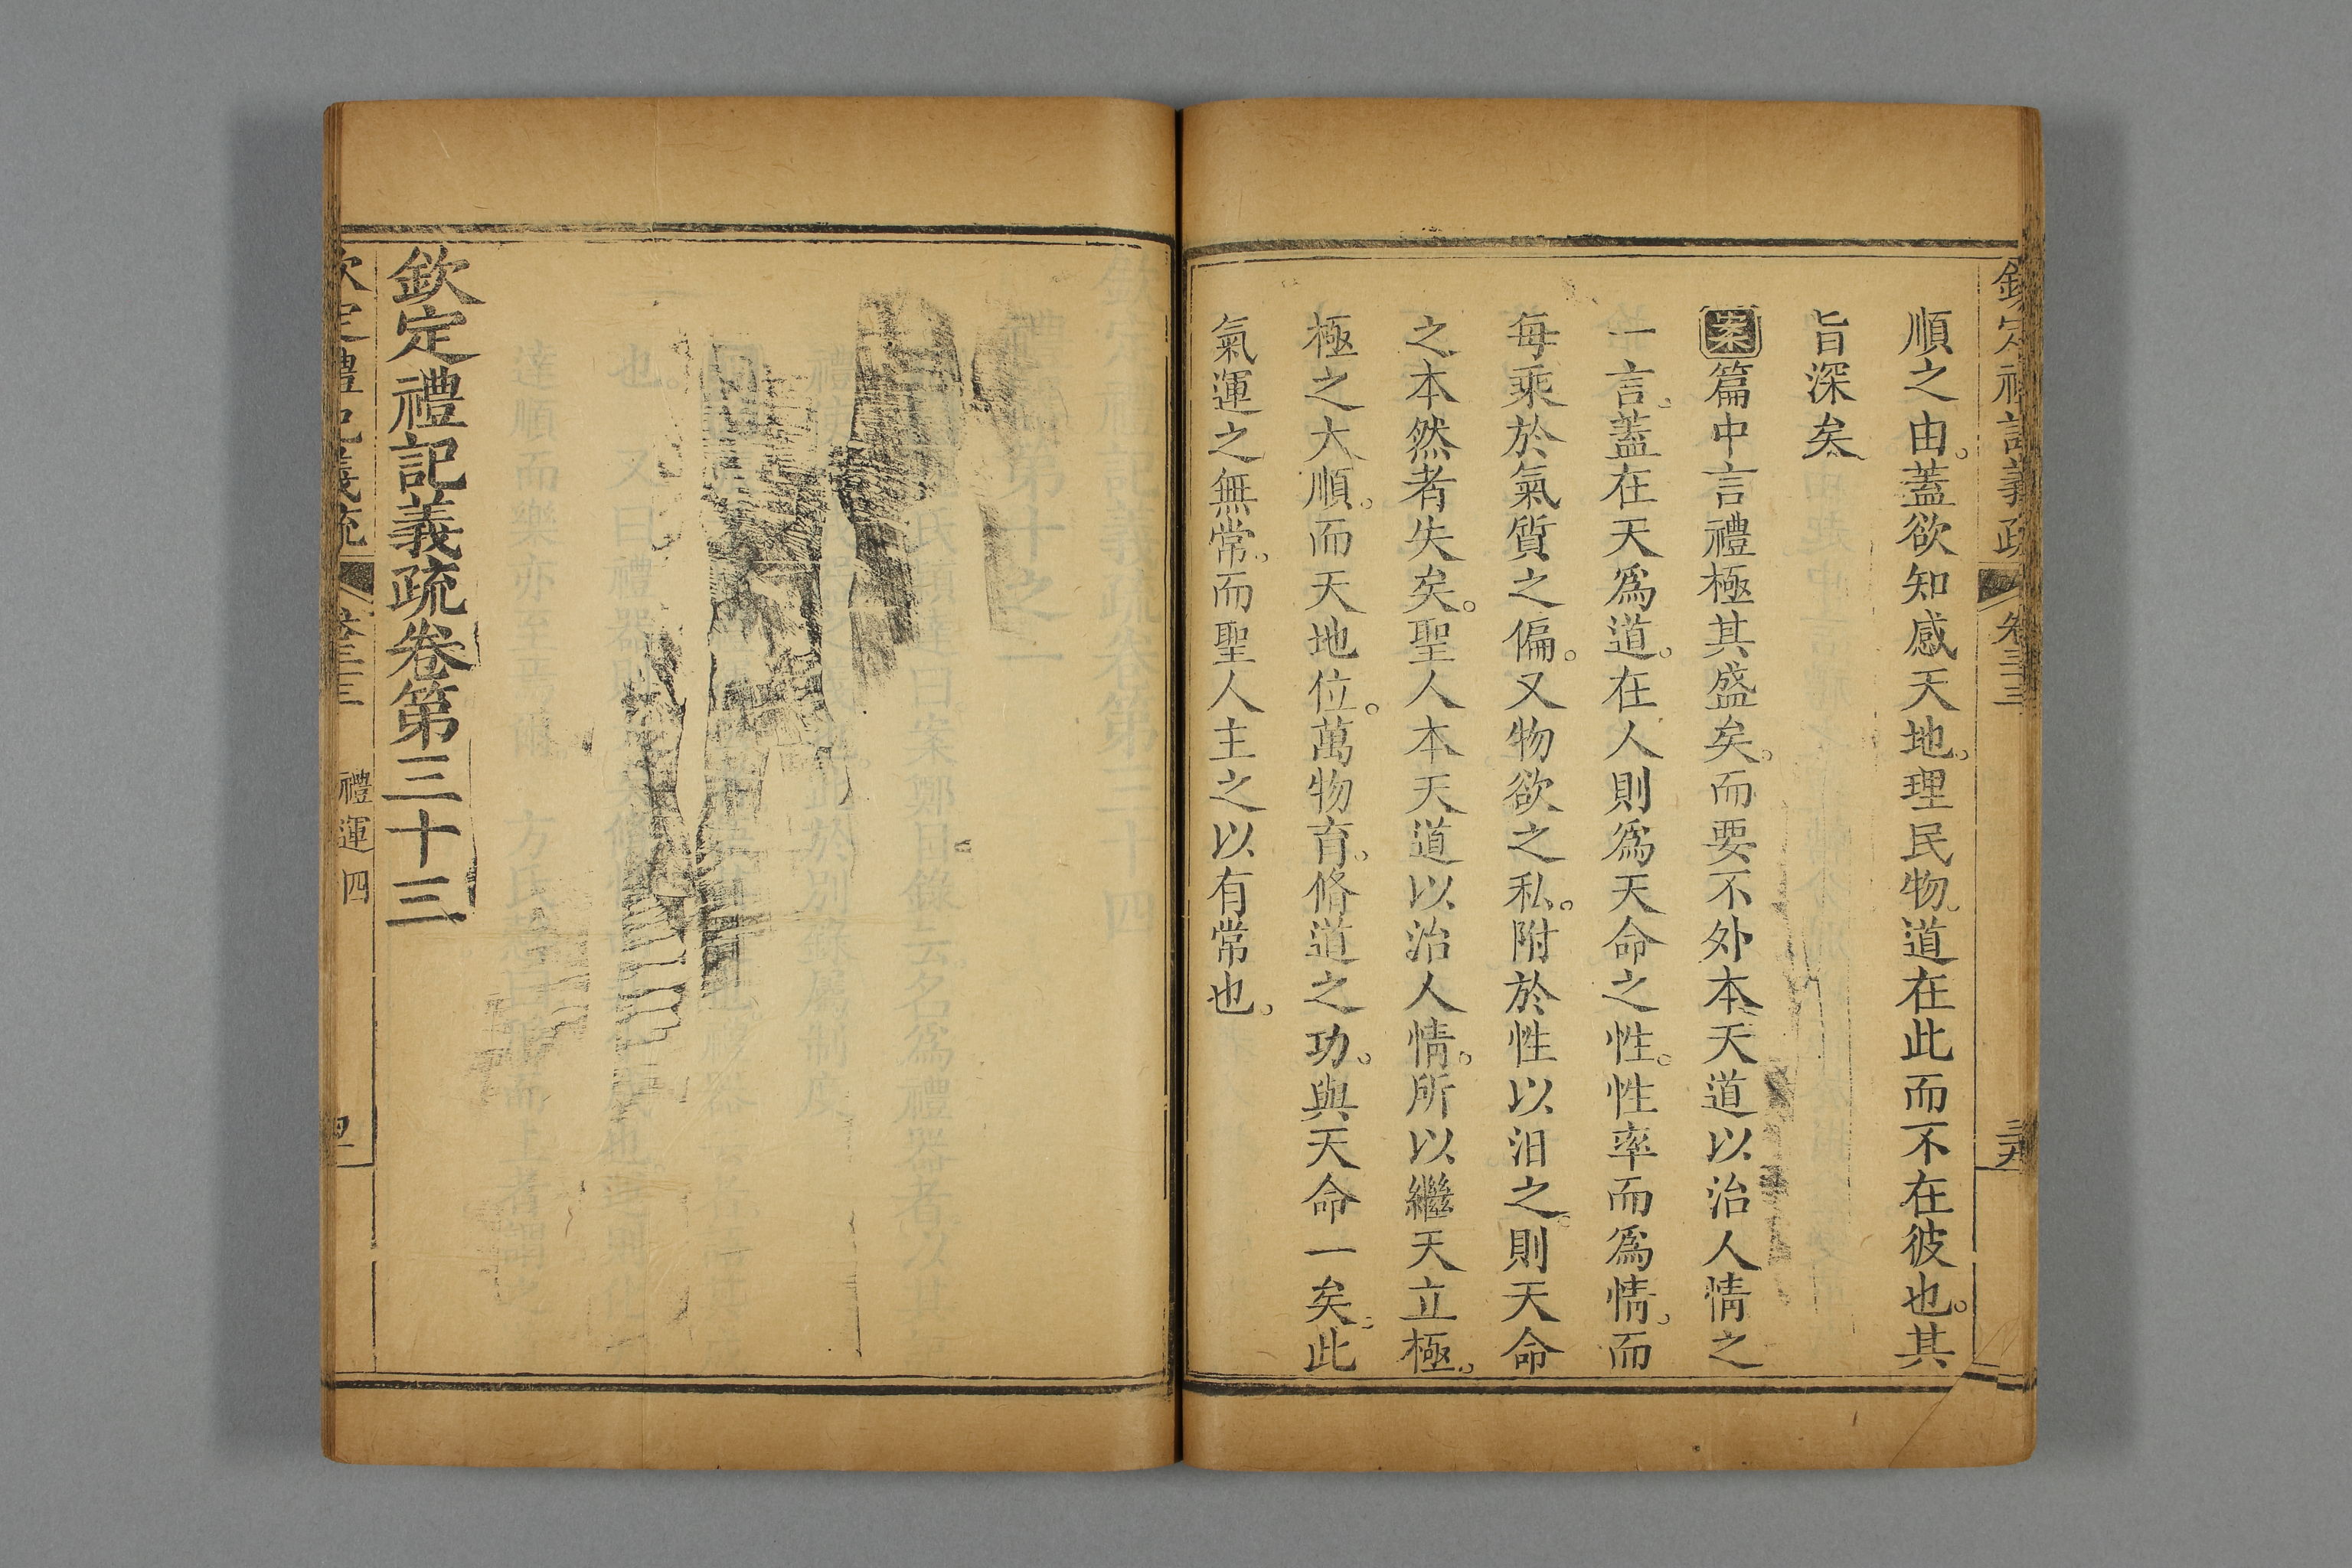 欽定禮記義疏 卷三十三
順之由。蓋欲知感天地。理民物。道在此而不在彼也。其
旨深矣
案篇中言禮極其盛矣。而要不外本天道以治人情之
一言。蓋在天爲道。在人則爲天命之性。性率而爲情。而
每乘於氣質之偏。又物欲之私。附於性以汨之。則天命
之本然者失矣。聖人本天道以治人情。所以繼天立極。
極之大順。而天地位。萬物育。脩道之功。與天命一矣。此
氣運之無常。而聖人主之以有常也。
欽定禮記義疏卷第三十三
欽定禮記義疏 卷三十三 禮運四